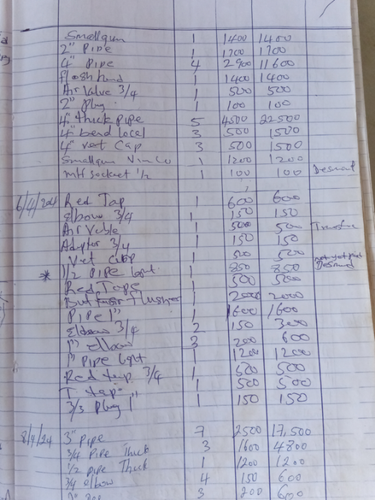 Smallgum 1 1400 1400
2" Pipe 1 1700 1700
4" Pipe 4 2900 11600
1 1400 1400
Air Valve 3/4 1 500 500
2" Plug 1 100 100
4" thick pipe 5 4500 22500
4" bend local 3 500 1500
4" Vent Cap 3 500 1500
Smallgum 1 1200 1200
socket 1/2 1 100 100
Red Tap 1 600 600
Elbow 3/4 1 150 150
Air 1 500 500
Adapter 3/4 1 150 150
Vet Cap 1 500 500
* 1/2 Pipe 1 850 850
Red Tape 1 500 500
Flusher 1 2000 2000
Pipe 1" 1 1600 1600
Elbow 3/4 2 150 300
1" Elbow 3 200 600
1" Pipe 1 1200 1200
Red tap 3/4 1 500
T tap 1 500 500
Plug 1" 1 150 150
3" Pipe 7 2500 17,500
3/4 Pipe Thick 3 1600 4800
1/2 pipe Thick 1 1200 1200
3/4 elbow 4 150 600
3 200 600